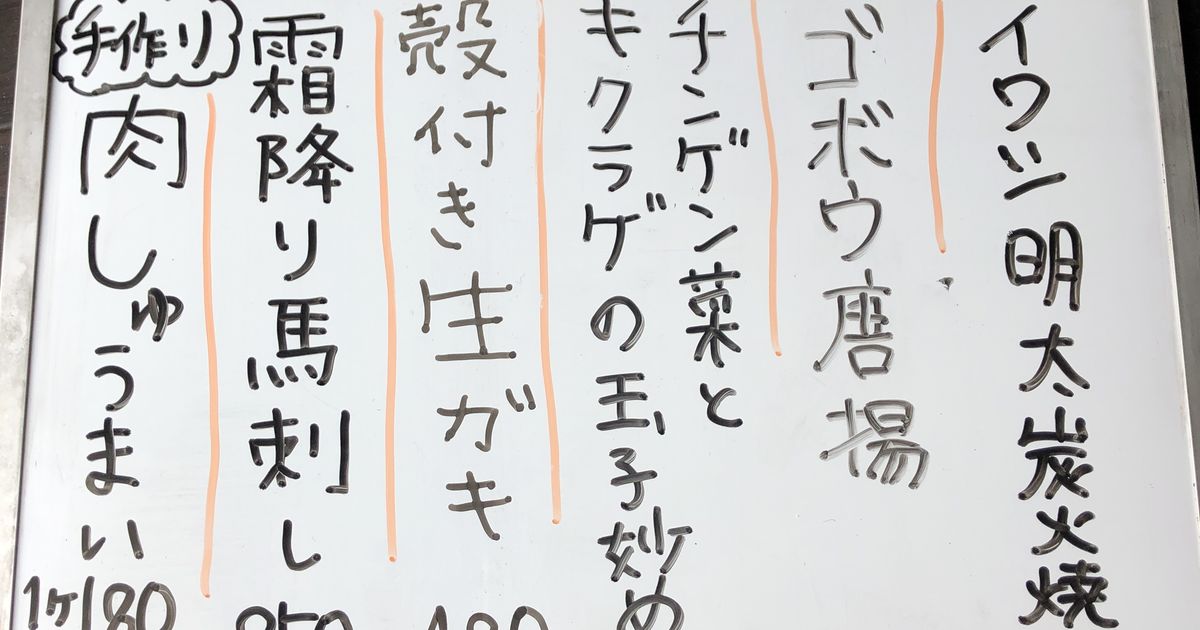 イワシ明太炭火焼
ゴボウ磨揚
チンゲン菜と
キクラゲの玉子炒め
殻付き生ガキ
霜降り馬刺し
手作り
肉しゅうまい
1ヶ180